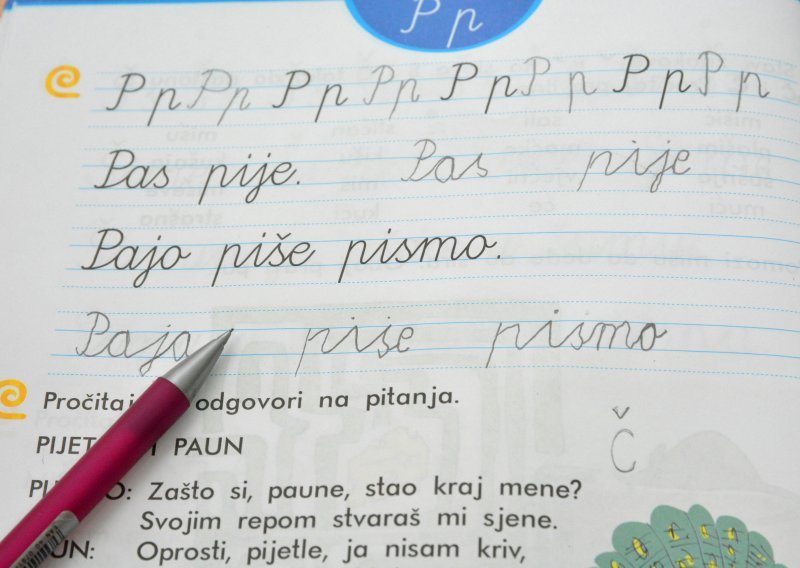 P p
P p P p P p P p P p P p P p P p
Pas pije. Pas pije
Pajo piše pismo.
Paja pise pismo
Pročitaj odgovori na pitanja.
Č
PAUN
Zašto si, paune, stao kraj mene?
Svojim repom stvaraš mi sjene.
Oprosti, pijetle, ja nisam kriv,